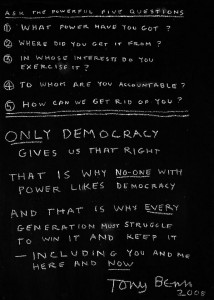 ASK THE POWERFUL FIVE QUESTIONS
① WHAT POWER HAVE YOU GOT ?
② WHERE DID YOU GET IT FROM ?
③ IN WHOSE INTERESTS DO YOU
EXERCISE IT ?
④ TO WHOM ARE YOU ACCOUNTABLE ?
⑤ HOW CAN WE GET RID OF YOU ?
ONLY DEMOCRACY
GIVES US THAT RIGHT
THAT IS WHY NO-ONE WITH
POWER LIKES DEMOCRACY
AND THAT IS WHY EVERY
GENERATION MUST STRUGGLE
TO WIN IT AND KEEP IT
— INCLUDING YOU AND ME
HERE AND NOW
Tony Benn
2008